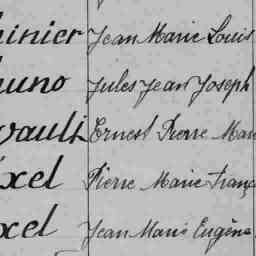 hinier Jean Marie Louis
uno Jules Jean Joseph
vault Ernest Pierre Mari
xel Pierre Marie França
xel Jean Marie Eugène